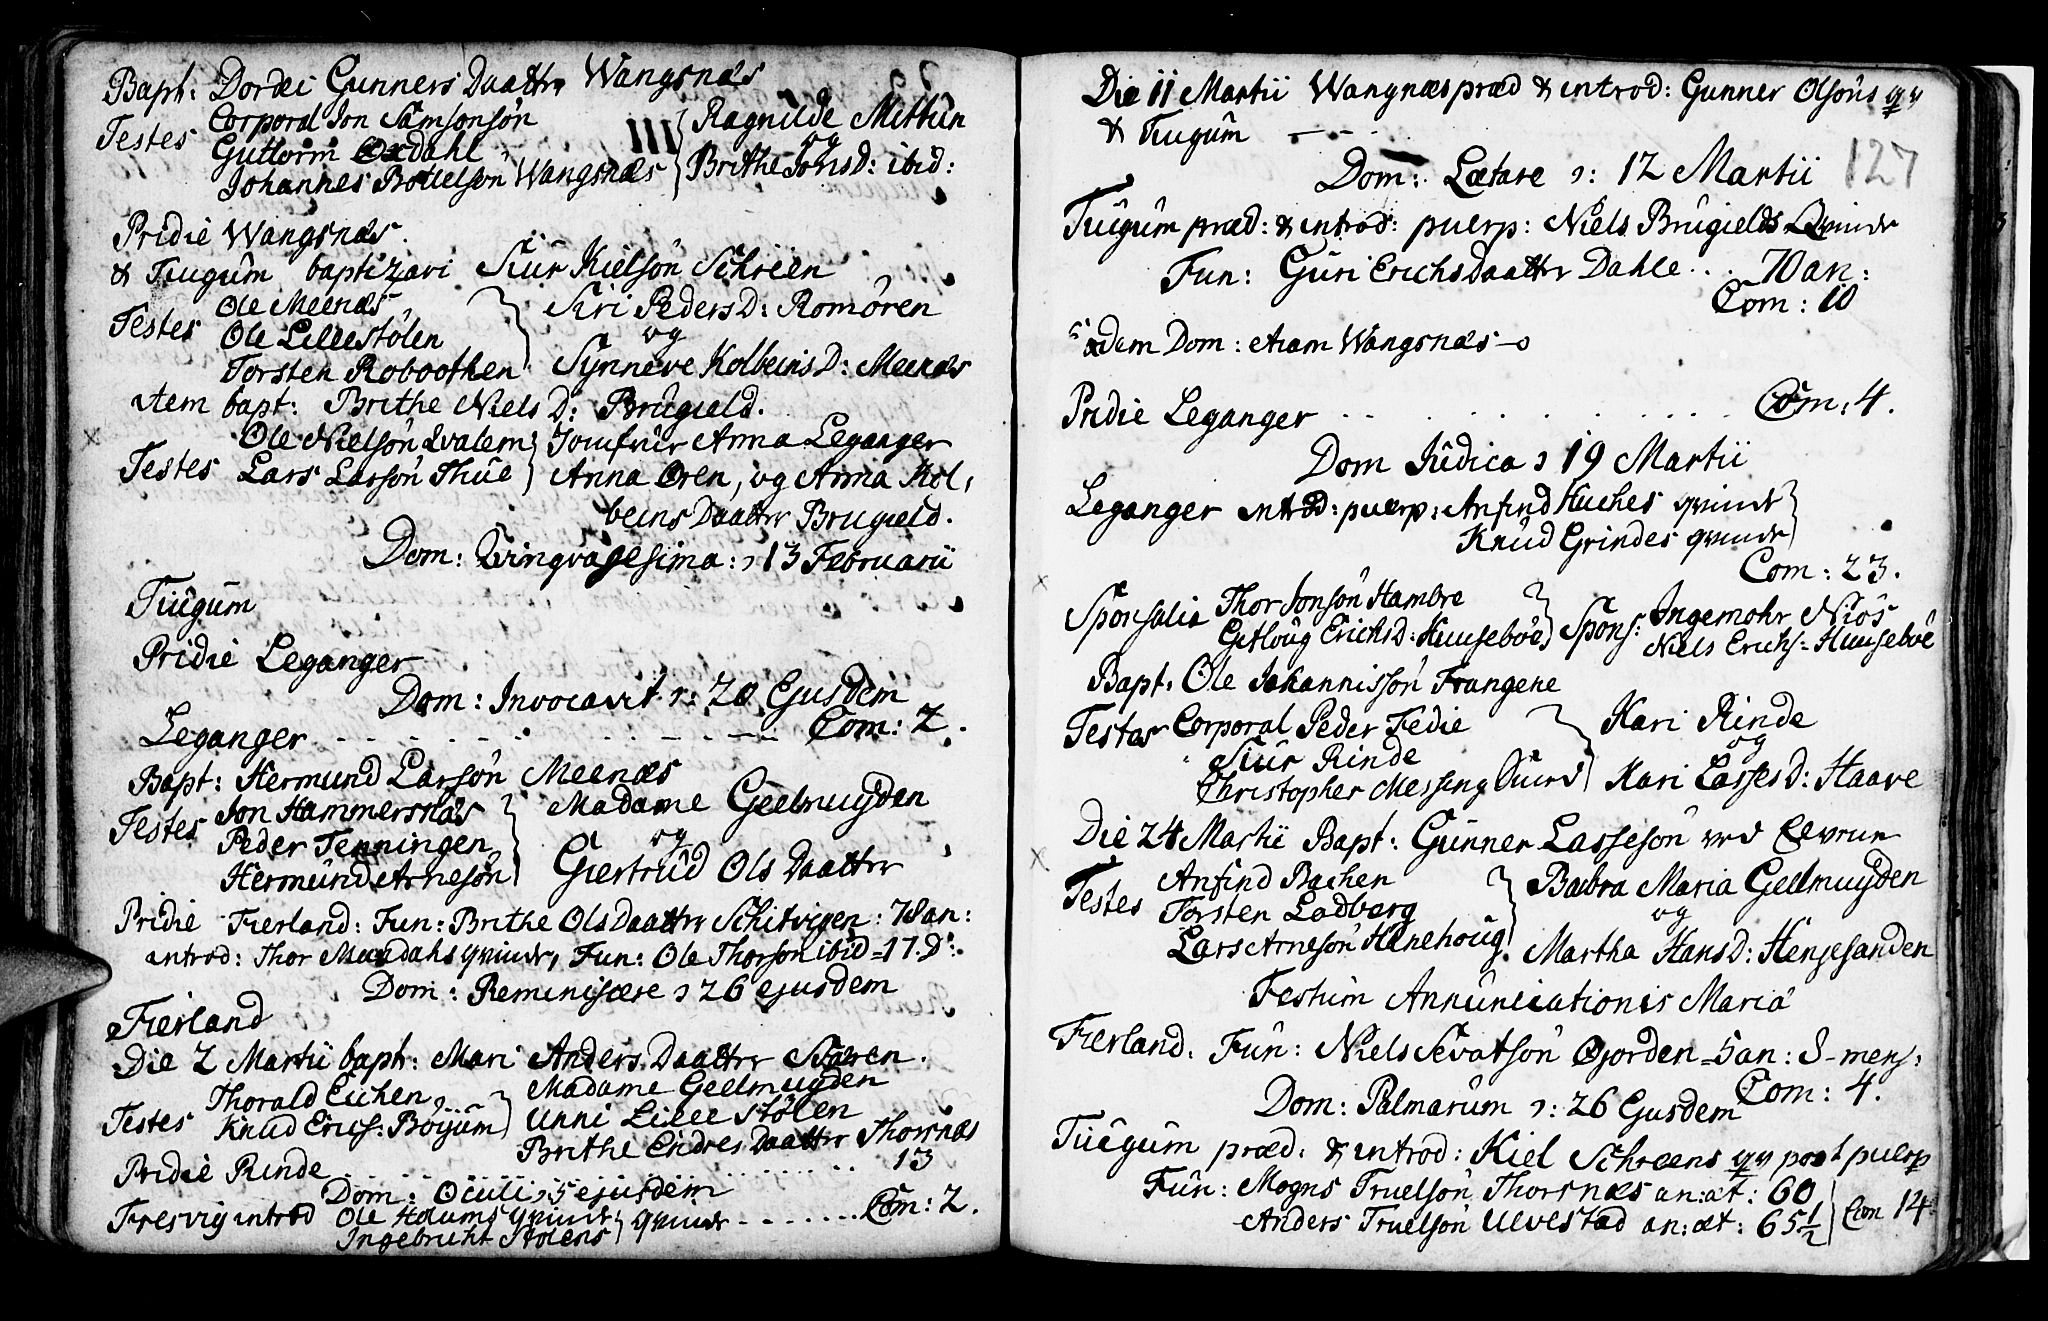 Bapt: Dordei Gunners Daatter Wangsnæs
Testes Corporal Jon Samsonsøn
Guttorm Oxdahl
Johannes Bottelsøn Wangsnæs
Ragnilde Mittun
og
Brithe Jonsd: ibid:
Pridie Wangsnæs
& Tiugum baptizavi Siur Kielsøn Schreen
Testes Ole Meenæs
Ole Lillestølen
Torsten Roboothen
Siri Peders D: Romøren
og
Synneve Kolbeins D: Meenæs
item bapt: Brithe Niels D: Brugield.
Testes Ole Nielsøn Qvalem
Lars Larsøn Thue
Jomfrur Anna Leganger
Anna Øren, og Anna Kol,
beins Daatter Brugield.
Dom: Qvinqvagesima: 13 Februarii
Tiugum
Pridie Leganger
Dom: Invocavit 20 Ejusdem
Leganger Com: 2.
Bapt: Hermund Larsøn Meenæs
Testes Jon Hammersnæs
Peder Tenningen
Hermund Arnesøn
Madame Geelmuyden
og
Giertrud Ols Daatter
Pridie Fierland: Fun: Brithe Ols Daatter Schitvigen: 78 an:
introd: Thor Mundahls qvinde, Fun: Ole Thorson ibid = 17. D:
Dom: Reminiscere 26 ejusdem
Fierland
Die 2 Martii bapt: Mari Anders Daatter
Testes Thorald Eichen,
Knud Erics: Bøyum
Madame Geelmuyden
Unni Lillestølen
Brithe Endres Daatter Thorsnæs
Pridie Rinde 13
Dom: Oculi 5 ejusdem
Fresvig introd Ole Hdums qvinde Com: 2.
Ingebricht Stølens qvinde
Die 11 Martii Wangnæs præd & introd: Gunner Olsøns qv
& Tiugum
127
Dom: Lætare 12 Martii
Tiugum præd: & introd: puerp: Niels Brugields Qvinde
Fun: Guri Erichsdaatter Dahle 70 an:
Com: 10
Eadem Dom: etiam Wangsnæs
Pridie Leganger Com: 4.
Dom Judica 19 Martii
Leganger introd: puerp: Anfind Huches qvinde
Knud Grindes qvinde
Com: 23.
Sponsalia Thor Jonsøn Hambre
Getloug Erichs D: Huusebøe
Spons: Ingemohr Niøs
Niels Erichs: Huusebøe
Bapt: Ole Johannissøn Frangene
Testes Corporal Peder Fedie
Siur Rinde
Christopher Messing
Kari Rinde
og
Kari Lasses D: Haave
Die 24 Martii Bapt: Gunner Lassesøn ved
Testes Anfind Bachen
Torsten Ladberg
Lars Arnesøn Hanehoug.
Babra Maria Geelmuyden
og
Martha Hans D: Hengesanden
Festum Annunciationis Mariæ
Fierland. Fun: Niels Sevatsøn Øjorden = 5 an: 8 mens:
Com: 4.
Dom: Palmarum 26 Ejusdem
Tiugum præd. & introd: Kiel Schreens qv post puerp
Fun: Mogns Truelsøn Thorsnæs an: æt: 60
Anders Truelsøn Ulvestad an: æt: 65½
Com 14